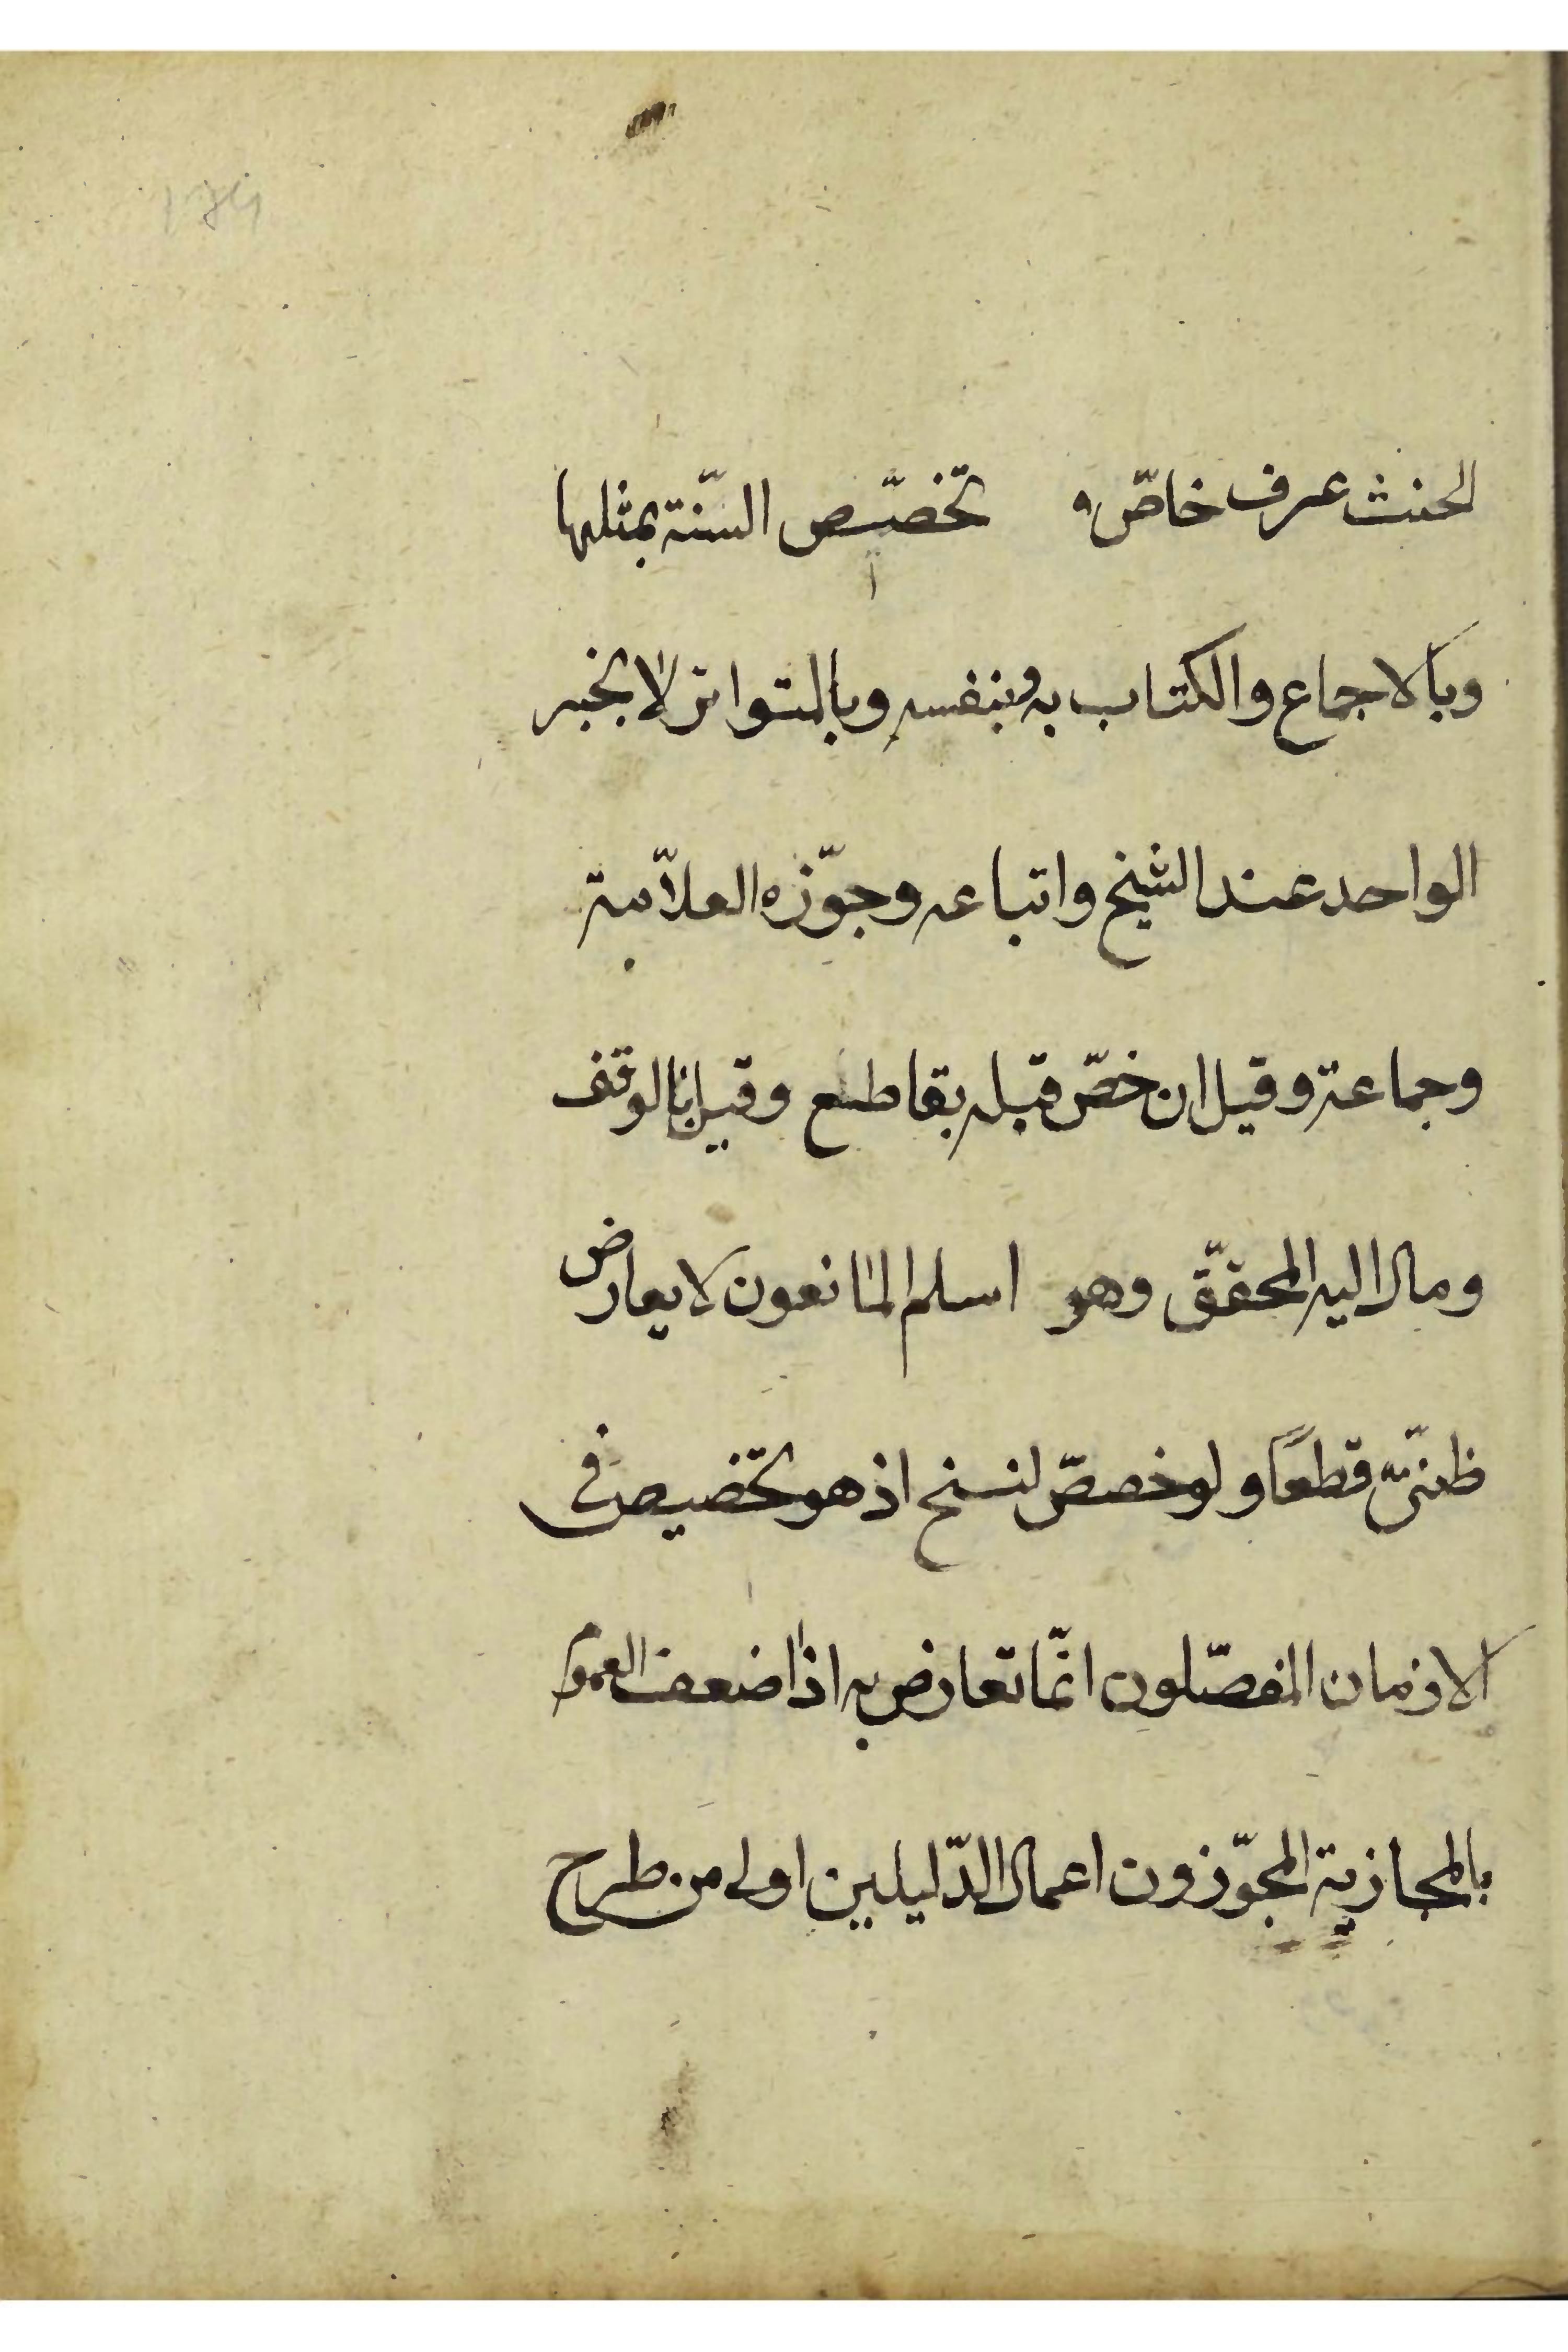 الحنث عرف خاصّ تخصّيص السّنة بمثلها
وبالاجماع والكتاب به وبنفسه وبالمتواتر لا بخبر
الواحد عند الشيخ واتباعه وجوّزه العلاّمة
وجماعة وقيل ان خصّ قبله بقاطع وقيل بالوقف
ومال اليه المحقّق وهو اسلم المانعون لا يعارض
ظنّىّ قطعًا ولو خصصّ لنسخ اذ هو تخصيص فى
الازمان المفصّلون انّما تعارض به اذا ضعف العموم
بالمجازية المجوّزون اعمال الدّليلين اولى من طرح